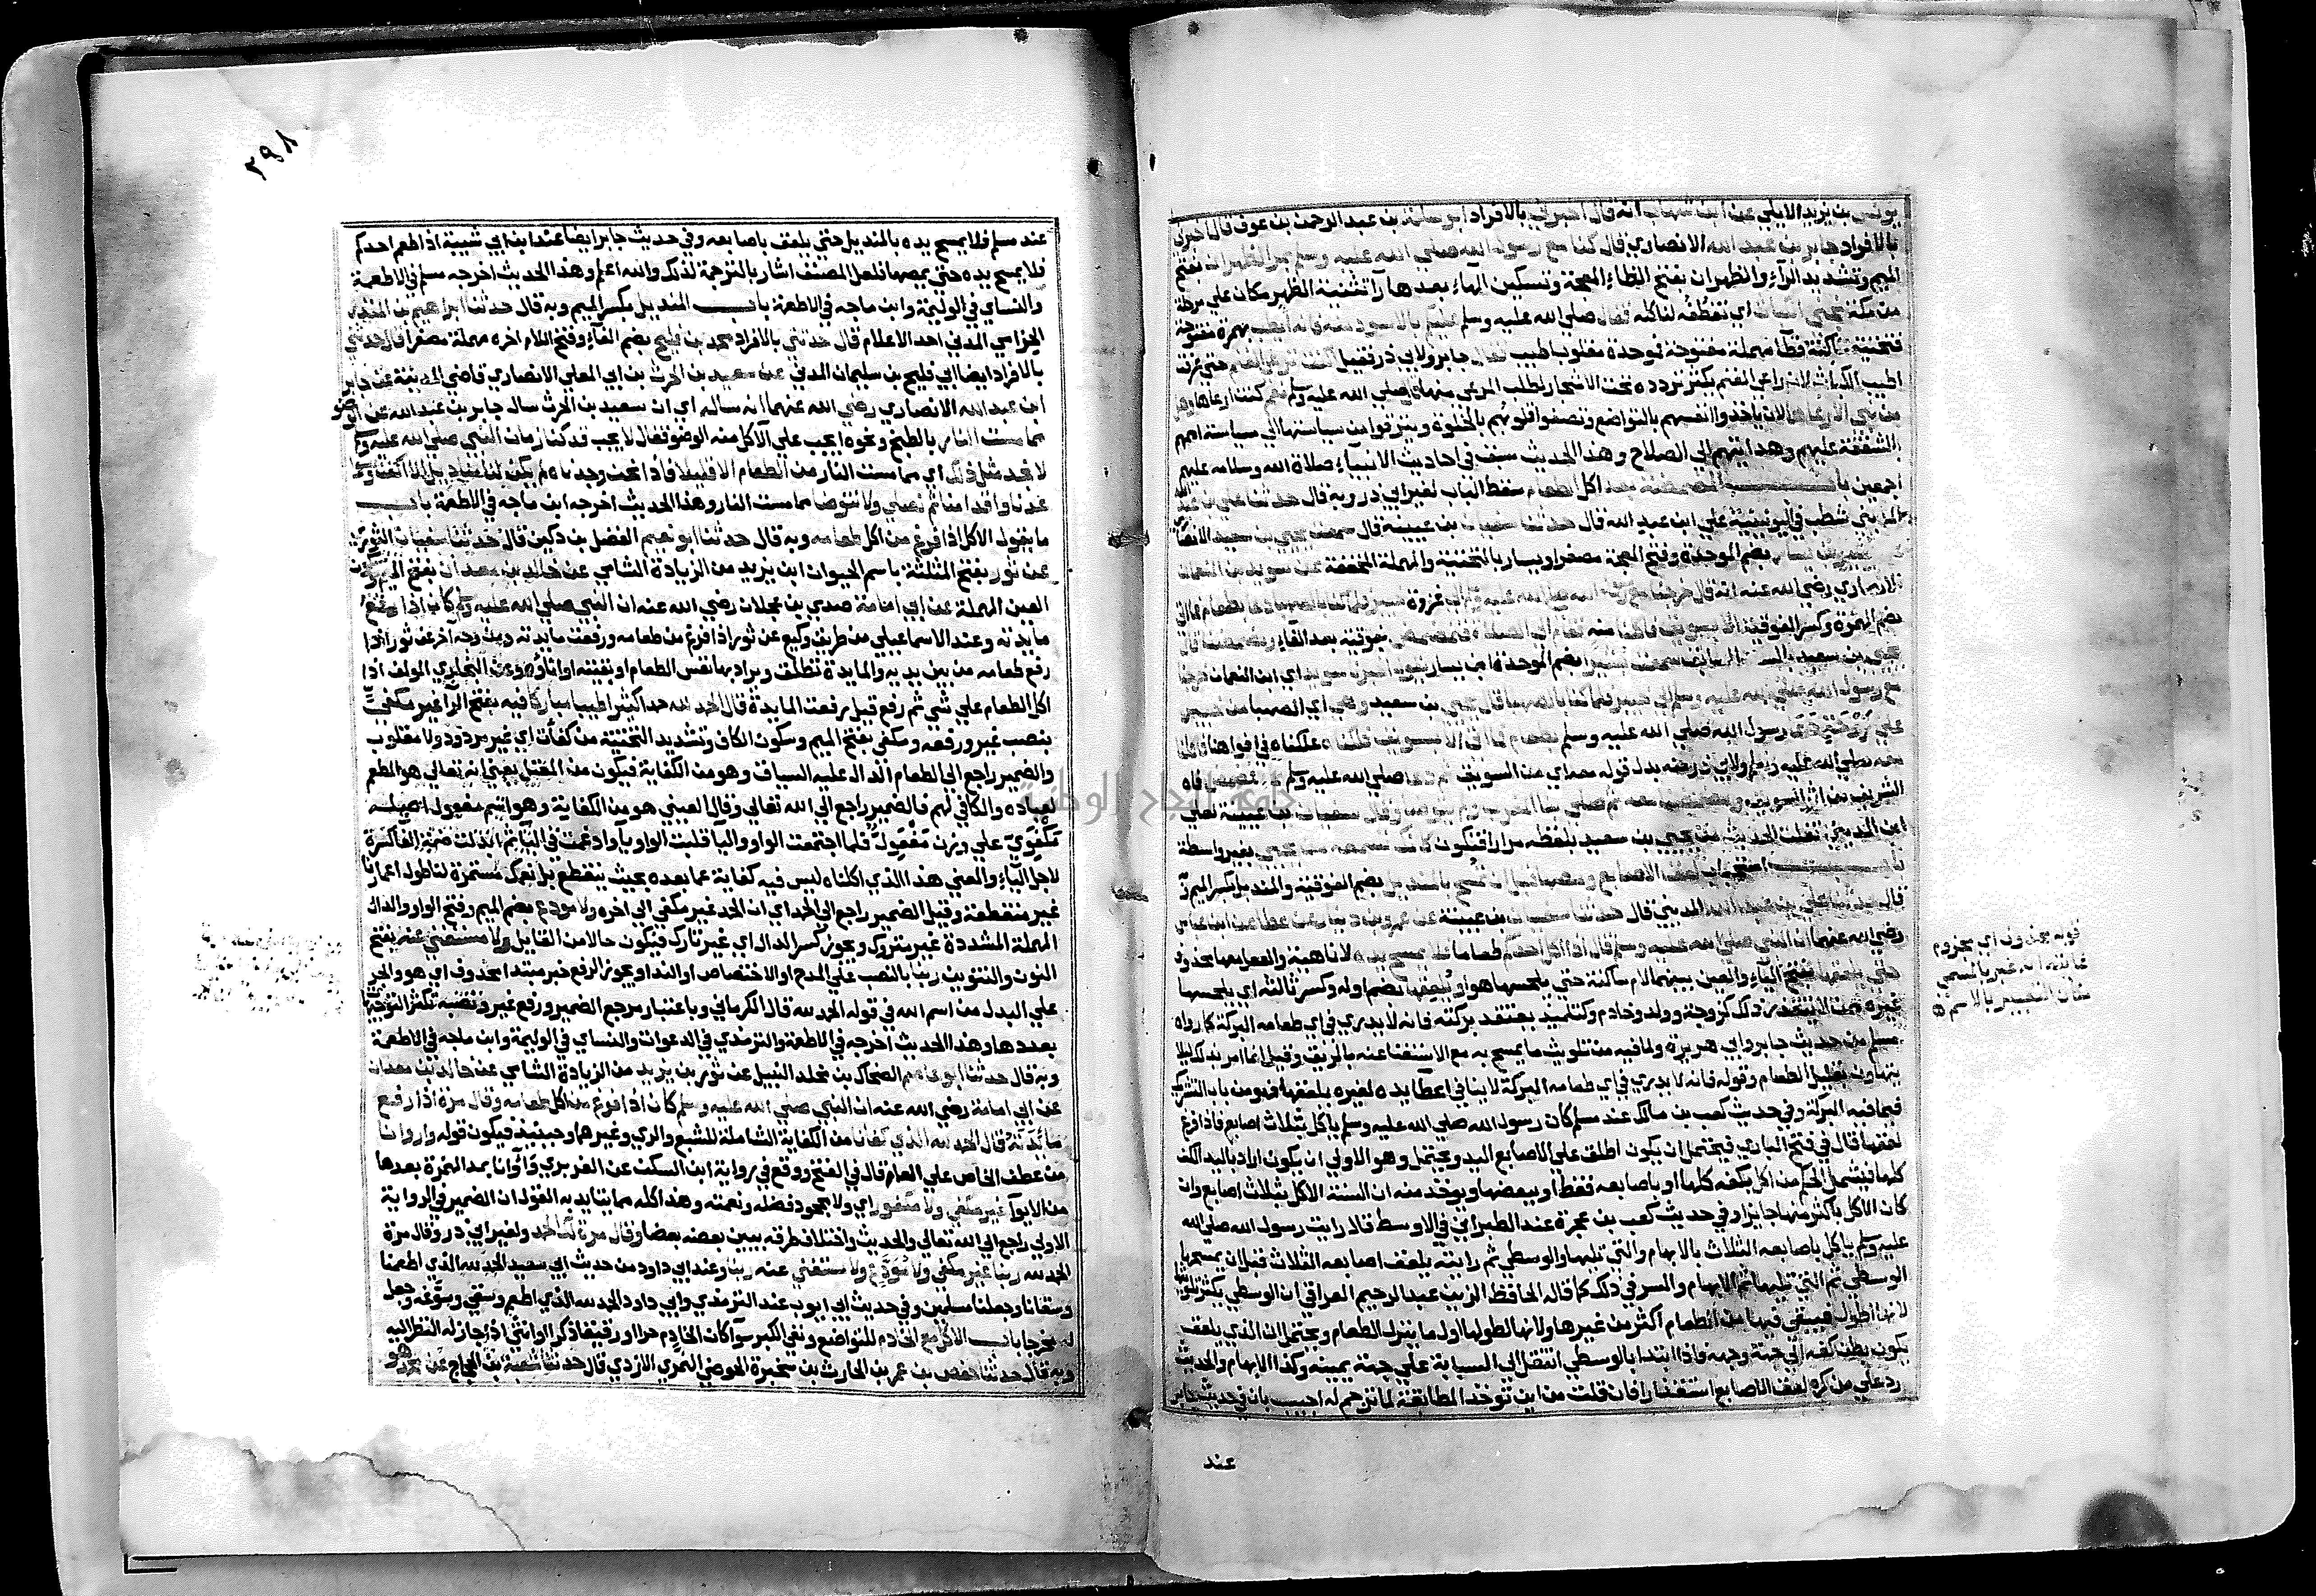 يونس بن يزيد الايلي عن ابن شهاب انه قال اخبرني بالافراد ابو سلمة بن عبد الرحمن بن عوف قال اخبرني
بالافراد جابر بن عبد الله الانصاري قال كنا مع رسول الله صلي الله عليه وسلم بمر الظهران بفتح
الميم وتشديد الرآء والظهران بفتح الظاء المعجمة وتسكين الهاء بعدها رآ تثنية الظهر مكان علي مرحلة
من مكة نجني الكباث اي نقتطفه لناكله فقال صلي الله عليه وسلم عليكم بالاسود منه فانه ايطب بهمزة مفتوحة
فتحتية ساكنة فطآ مهملة مفتوحة فموحدة مقلوب اطيب فقال جابر ولابي ذر فقيل اكنت ترعي الغنم حتي عرفت
اطيب الكباث لان راعي الغنم يكثر تردده تحت الاشجار لطلب المرعي منها قال صلي الله عليه وسلم نعم كنت ارعاها وهل
من نبي الا رعاها لان ياخذوا انفسهم بالتواضع وتصفوا قلوبهم بالخلوة ويترقوا من سياستها الي سياسة اممهم
بالشفقة عليهم وهدايتهم الي الصلاح وهذا الحديث سبق في احاديث الانبيآء صلاة الله وسلامه عليهم
اجمعين باب المضمضة بعد اكل الطعام سقط الباب لغير ابي ذر وبه قال حدثنا علي بن عبد الله
المديني شطب في اليونينية علي ابن عبد الله قال حدثنا سفيان بن عيينة قال سمعت يحيي بن سعيد الانصاري
عن بشير بن يسار بضم الموحدة وفتح المعجمة مصغرا ويسار بالتحتية والمهملة المخففة عن سويد بن النعمان
الانصاري رضي الله عنه انه قال خرجنا مع رسول الله صلي الله عليه وسلم الي غزوة خيبر فلما كنا بالصهبا دعا بطعام فما اتي
بضم الهمزة وكسر الفوقية الا بسويق فاكلنا منه فقام الي الصلاة فتمضمض بفوقية بعد الفآء ومضمضنا قال
يحيي بن سعيد بالسند السابق سمعت بشيرا بضم الموحدة ابن يسار يقول اخبرنا سويد اي ابن النعمان خرجنا
مع رسول الله صلي الله عليه وسلم الي خيبر فلما كنا بالصهبا قال يحيي بن سعيد وهي اي الصهبا من خيبر
علي روحة دعا رسول الله صلي الله عليه وسلم بطعام فما اتي الا بسويق فلكناه علكناه في افواهنا فاكلنا
معه صلي الله عليه وسلم ولابي ذر منه بدل قوله معه اي من السويق ثم دعا صلي الله عليه وسلم بما فمضمض فاه
الشريف من اثر السويق ومضمضنا معه ثم صلي بنا المغرب ولم يتوضا وقال سفيان بن عيينة لعلي
ابن المديني نقلت الحديث من يحيي بن سعيد بلفظه مرارا فتكون كانك تسمعه من يحيي بغير واسطة
باب استحباب لعق الاصابع ومصها قبل ان تمسح بالمنديل بضم الفوقية والمنديل بكسر الميم وبه
قال حدثنا علي بن عبد الله المديني قال حدثنا سفيان بن عيينة عن عمرو بن دينار عن عطا عن ابن عباس
رضي الله عنهما ان النبي صلي الله عليه وسلم قال اذا اكل احدكم طعاما فلا يمسح يده لا ناهية والفعل بعدها محذوف
حتي يلعقها بفتح اليآء والعين بينهما لام ساكنة حتي يلحسها هو او يلعقها بضم اوله وكسر ثالثه اي يلحسها
غيره ممن لا يتقذر ذلك كزوجة وولد وخادم وكتلميذ يعتقد بركته فانه لا يدري في اي طعامه البركة كما رواه
مسلم من حديث جابر وابي هريرة ولما فيه من تلويث ما يمسح به مع الاستغنا عنه بالريق وقيل انما امر بذلك ليلا
يتهاون بقليل الطعام وقوله فانه لا يدري في اي طعامه البركة لا ينافي اعطا يده لغيره يلعقها فهو من باب التشريك
فيما فيه البركة وفي حديث كعب بن مالك عند مسلم كان رسول الله صلي الله عليه وسلم ياكل بثلاث اصابع فاذا فرغ
لعقها قال في فتح الباري فيحتمل ان يكون اطلق علي الاصابع اليد ويحتمل وهو الاولي ان يكون اراد باليد الكف
كلها فيشمل الحكم من اكل بكفه كلها او باصابعه فقط او ببعضها ويوخذ منه ان السنة الاكل بثلاث اصابع وان
كان الاكل باكثر منها جايزا وفي حديث كعب بن عجرة عند الطبراني في الاوسط قال رايت رسول الله صلي الله
عليه وسلم ياكل باصابعه الثلاث بالابهام والتي تليها والوسطي ثم رايته يلعق اصابعه الثلاث قبل ان يمسحها
الوسطي ثم التي تليها ثم الابهام والسر في ذلك كما قاله الحافظ الزين عبد الرحيم العراقي ان الوسطي يكثر تلويثها
لانها اطول فيبقي فيها من الطعام اكثر من غيرها ولانها لطولها اول ما ينزل الطعام ويحتمل ان الذي يلعق
يكون بطن كفه الي جهة وجهه واذا ابتدا بالوسطي انتقل الي السبابة علي جهة يمينه وكذا الابهام والحديث
رد علي من كره لعق الاصابع استقذارا فان قلت من اين توخذ المطابقة لما ترجم له اجيب بان في حديث جابر
عند
قوله محذوف اي مجزوم
نفان التفسير بالاسم
٢٩٨
عند مسلم فلا يمسح يده بالمنديل حتي يلعق باصابعه وفي حديث جابر ايضا عند ابن ابي شيبة اذا طعم احدكم
فلا يمسح يده حتي يمصها فلعل المصنف اشار بالترجمة لذلك والله اعلم وهذا الحديث اخرجه مسلم في الاطعمة
والنساي في الوليمة وابن ماجه في الاطعمة باب المنديل بكسر الميم وبه قال حدثنا ابراهيم بن المنذر
الحزامي المدني احد الاعلام قال حدثني بالافراد محمد بن فليح بضم الفآء وفتح اللام اخره مهملة مصغرا قال حدثني
بالافراد ايضا ابي فليح بن سليمان المدني عن سعيد بن الحرث بن ابي المعلي الانصاري قاضي المدينة عن جابر
ابن عبد الله الانصاري رضي الله عنهما انه ساله اي ان سعيد بن الحرث سال جابر بن عبد الله عن الوضو
مما مست النار بالطبخ ونحوه ايجب علي الاكل منه الوضو فقال لا يجب قد كنا زمان النبي صلي الله عليه وسلم
لا نجد مثل ذلك اي مما مست النار من الطعام الا قليلا فاذا نحن وجدناه لم يكن لنا مناديل الا اكفنا وسوا
عدنا واقدامنا ثم نصلي ولا نتوضا مما مست النار وهذا الحديث اخرجه ابن ماجه في الاطعمة باب
ما يقول الاكل اذا فرغ من اكل طعامه وبه قال حدثنا ابو نعيم الفضل بن دكين قال حدثنا سفيان الثوري
عن ثور بفتح المثلثة باسم الحيوان ابن يزيد من الزيادة الشامي عن خالد بن معدان بفتح الميم وسكون
العين المهملة عن ابي امامة صدي بن عجلان رضي الله عنه ان النبي صلي الله عليه وسلم كان اذا رفع
مايدته وعند الاسماعيلي من طريق وكيع عن ثور اذا فرغ من طعامه ورفعت مايدته ومن وجه آخر عن ثور اذا
رفع طعامه من بين يديه والمايدة تطلق ويراد بها نفس الطعام او بقيته او اناؤه وعن البخاري المولف اذا
اكل الطعام علي شي ثم رفع قيل رفعت المايدة قال الحمد لله حمدا كثيرا طيبا مباركا فيه بفتح الرآ غير مكفي
بنصب غير ورفعه ومكفي بفتح الميم وسكون الكاف وتشديد التحتية من كفأت اي غير مردود ولا مقلوب
والضمير راجع الي الطعام الدال عليه السياق وهو من الكفاية فيكون من المعتل يعني انه تعالي هو المطعم
لعباده والكافي لهم فالضمير راجع الي الله تعالي وقال العيني هو من الكفاية وهو اسم مفعول اصله
مكفوي علي وزن مفعول فلما اجتمعت الواو واليا قلبت الواو يآ وادغمت في اليآ ثم ابدلت ضمة الفا كسرة
لاجل اليآء والمعني هذا الذي اكلناه ليس فيه كفاية عما بعده بحيث ينقطع بل نعمك مستمرة لنا طول اعمارنا
غير منقطعة وقيل الضمير راجع الي الحمد اي ان الحمد غير مكفي الي اخره ولا مودع بضم الميم وفتح الواو والدال
المهملة المشددة غير متروك ويجوز كسر الدال اي غير تارك فيكون حالا من القايل ولا مستغني عنه بفتح
النون والتنوين ربنا بالنصب علي المدح او الاختصاص او الندا ويجوز الرفع خبر مبتدا محذوف اي هو والجر
علي البدل من اسم الله في قوله الحمد لله قال الكرماني وباعتبار مرجع الضمير ورفع غير ونصبه تكثر التوجيهات
بعددها وهذا الحديث اخرجه في الاطعمة والترمذي في الدعوات والنساي في الوليمة وابن ماجه في الاطعمة
وبه قال حدثنا ابو عاصم الضحاك بن مخلد النبيل عن ثور بن يزيد من الزيادة الشامي عن خالد بن معدان
عن ابي امامة رضي الله عنه ان النبي صلي الله عليه وسلم كان اذا فرغ من اكل طعامه وقال مرة اذا رفع
مائدته قال الحمد لله الذي كفانا من الكفاية الشاملة للشبع والري وغيرهما وحينيذ فيكون قوله واروانا
من عطف الخاص علي العام قال في الفتح ووقع في رواية ابن السكن عن الفربري وآوانا بمد الهمزة بعدها
من الايوآ غير مكفي ولا مكفور اي ولا مجحود فضله ونعمته وهذا كله مما يتايد به القول ان الضمير في الرواية
الاولي راجع الي الله تعالي والحديث واختلاف طرقه يبين بعضه بعضا وقال مرة لك الحمد ولغير ابي ذر وقال مرة
الحمد لله ربنا غير مكفي ولا مودع ولا مستغني عنه ربنا وعند ابي داود من حديث ابي سعيد الحمد لله الذي اطعمنا
وسقانا وجعلنا مسلمين وفي حديث ابي ايوب عند الترمذي وابي داود الحمد لله الذي اطعم وسقي وسوغه وجعل
له مخرجا باب الاكل مع الخادم للتواضع ونفي الكبر سوآ كان الخادم حرا او رقيقا ذكرا او انثي اذا جاز له النظر اليه
وبه قال حدثنا حفص بن عمر بن الحارث بن سخبرة الحوضي النمري الازدي قال حدثنا شعبة بن الحجاج عن محمد هو